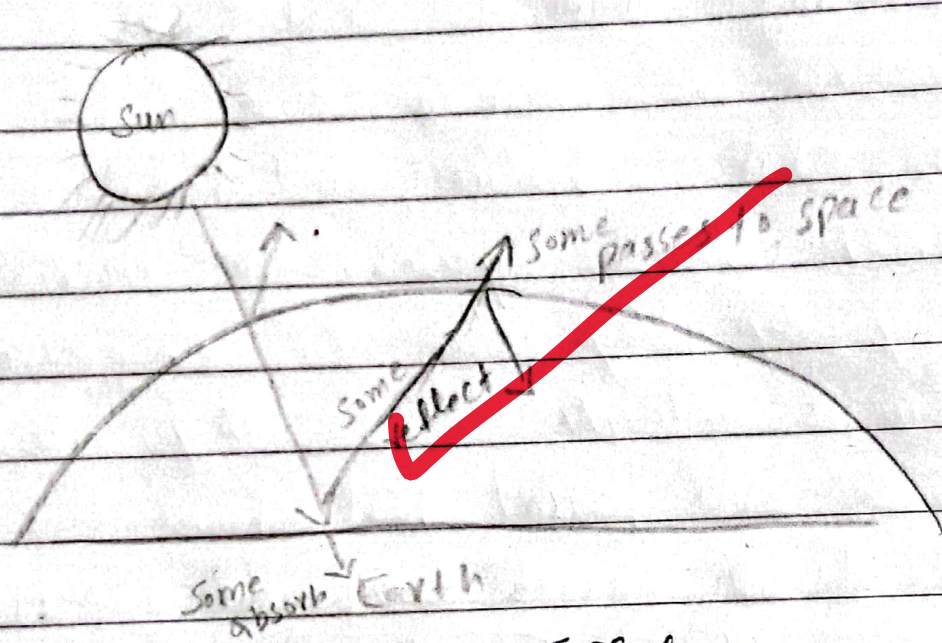 Sun
Some passes to space
Some reflect
Some absorb Earth